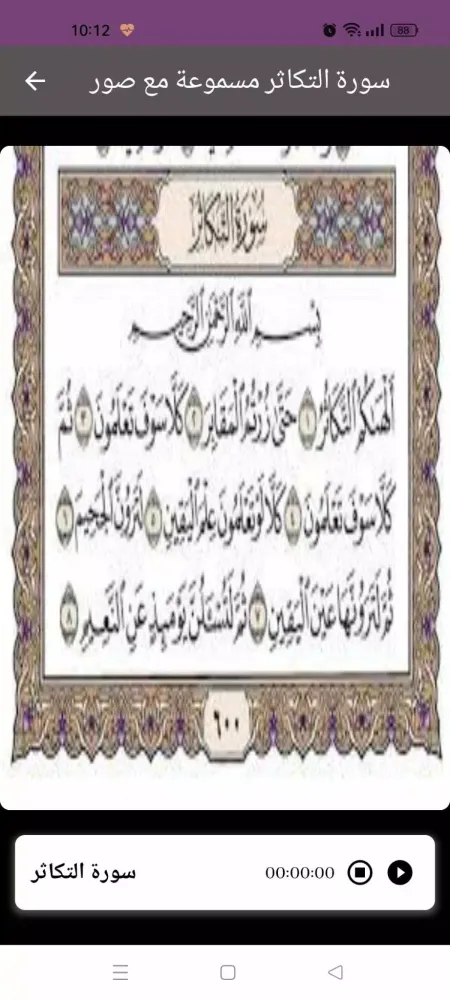 10:12
88
سورة التكاثر مسموعة مع صور
سُورَةُ التَّكَاثُرِ
بِسْمِ ٱللَّهِ ٱلرَّحْمَٰنِ ٱلرَّحِيمِ
أَلْهَىٰكُمُ ٱلتَّكَاثُرُ ١ حَتَّىٰ زُرْتُمُ ٱلْمَقَابِرَ ٢ كَلَّا سَوْفَ تَعْلَمُونَ ٣ ثُمَّ
كَلَّا سَوْفَ تَعْلَمُونَ ٤ كَلَّا لَوْ تَعْلَمُونَ عِلْمَ ٱلْيَقِينِ ٥ لَتَرَوُنَّ ٱلْجَحِيمَ ٦
ثُمَّ لَتَرَوُنَّهَا عَيْنَ ٱلْيَقِينِ ٧ ثُمَّ لَتُسْـَٔلُنَّ يَوْمَئِذٍ عَنِ ٱلنَّعِيمِ ٨
٦٠٠
سورة التكاثر
00:00:00